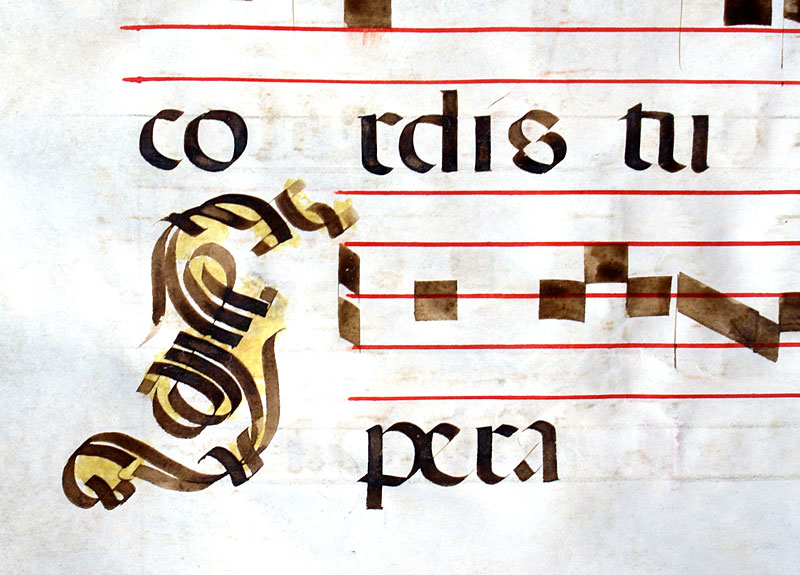 co rdis tu
Spera